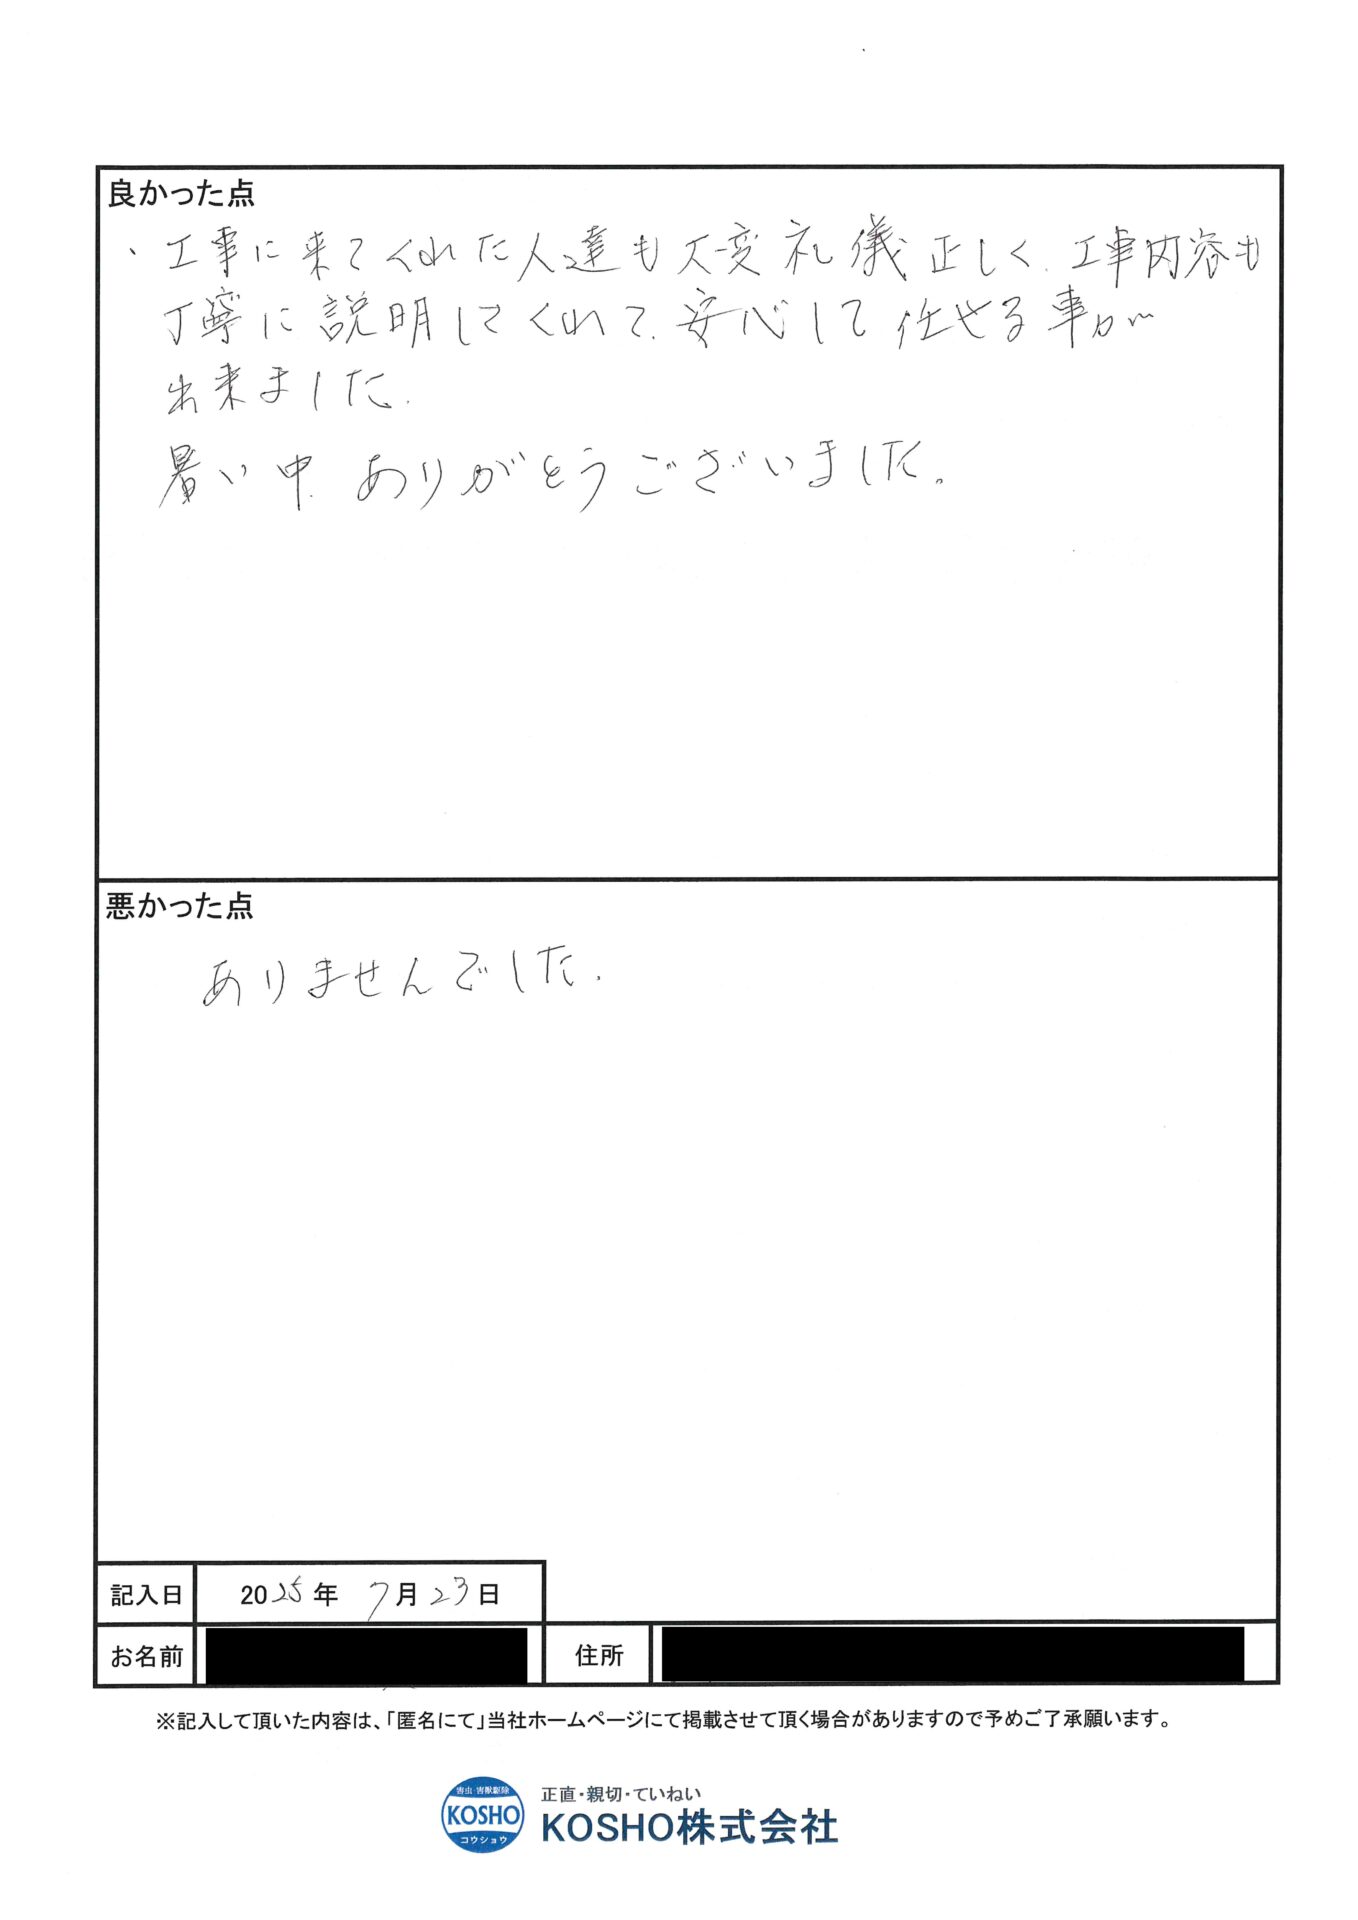 良かった点
・工事に来てくれた人達も大変礼儀正しく、工事内容も
丁寧に説明してくれて、安心して任せる事が
出来ました。
暑い中、ありがとうございました。
悪かった点
ありませんでした。
記入日 2025年 7月23日
お名前 住所
※記入して頂いた内容は、「匿名にて」当社ホームページにて掲載させて頂く場合がありますので予めご了承願います。
害虫・害獣駆除
KOSHO
コウショウ
正直・親切・ていねい
KOSHO株式会社